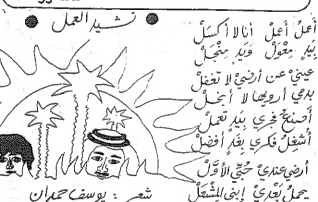 نشيد العمل
أعملُ أعملْ أنا لا أكسلْ
بيدٍ مِعْوَلْ ويدٍ مِنْجلْ
عينيْ عن أرضيْ لا تغفلْ
بدمي أرويها لا أبخلْ
أصنعُ فجري بيدٍ تعملْ
أشغِلُ فكري بغدٍ أفضلْ
أرضي عندي حُبّي الأوّلْ
يحملُ بعدي إبني المِشْعلْ
شعر : يوسف حمدان